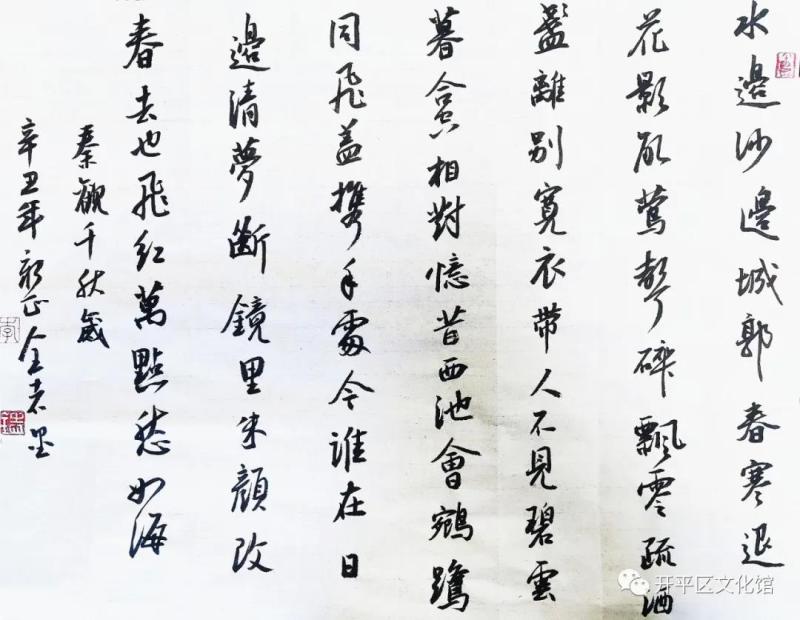 水邊沙邊城郭春寒退
花影亂鶯聲碎飄零疏酒
盞離別寬衣帶人不見碧雲
暮合空相對憶昔西池會鵷鷺
同飛蓋攜手處今誰在日
邊清夢斷鏡里朱顏改
春去也飛紅萬點愁如海
秦觀千秋歲
辛丑年新正
开平区文化馆